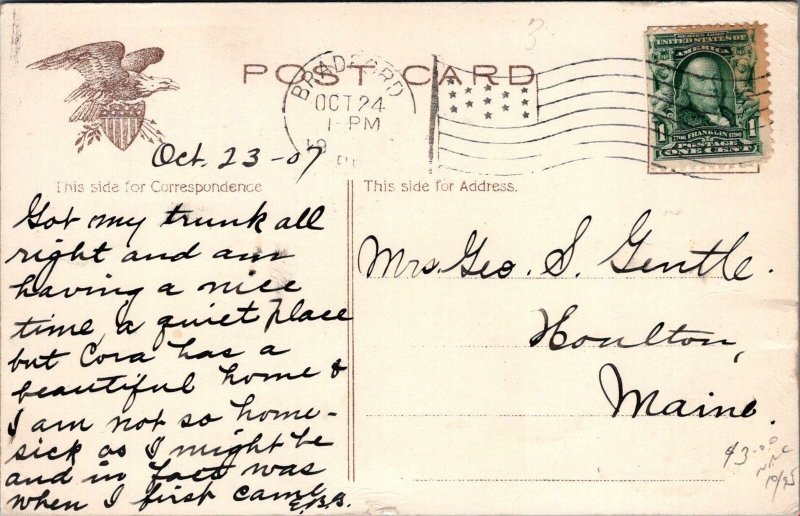 POST CARD
BRADFORD
OCT 24
1-PM
19
SERIES 1902
UNITED STATES OF
AMERICA
1 FRANKLIN 1
1706 1790
POSTAGE
ONE CENT
Oct. 23-07
This side for Correspondence
This side for Address.
Got my trunk all
right and am
having a nice
time a quiet place
but Cora has a
beautiful home &
I am not so home-
sick as I might be
and in fact was
when I first came
E.B.B.
Mrs. Geo. S. Gentle.
Houlton,
Maine.
$3.00
10/25